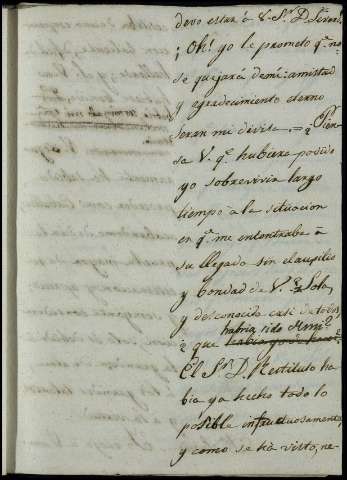 devo estar â V. Sr. D. Gerard.
¡Oh! yo le prometo q.e no
se quejará de mi: amistad
y agradecimiento eterno
seran mi divisa. = ¿Pien
sa V. q.e hubiera podido
yo sobrevivir largo
tiempo â la situacion
en q.e me encontraba â
su llegada sin el ausilio
y bondad de V.? Solo,
y desconocido casi de todos,
habria sido de mi?
¿ que habia yo de hacer?
El S.r D. Restituto ha
bia ya hecho todo lo
posible infructuosamente,
y como se há visto, ne